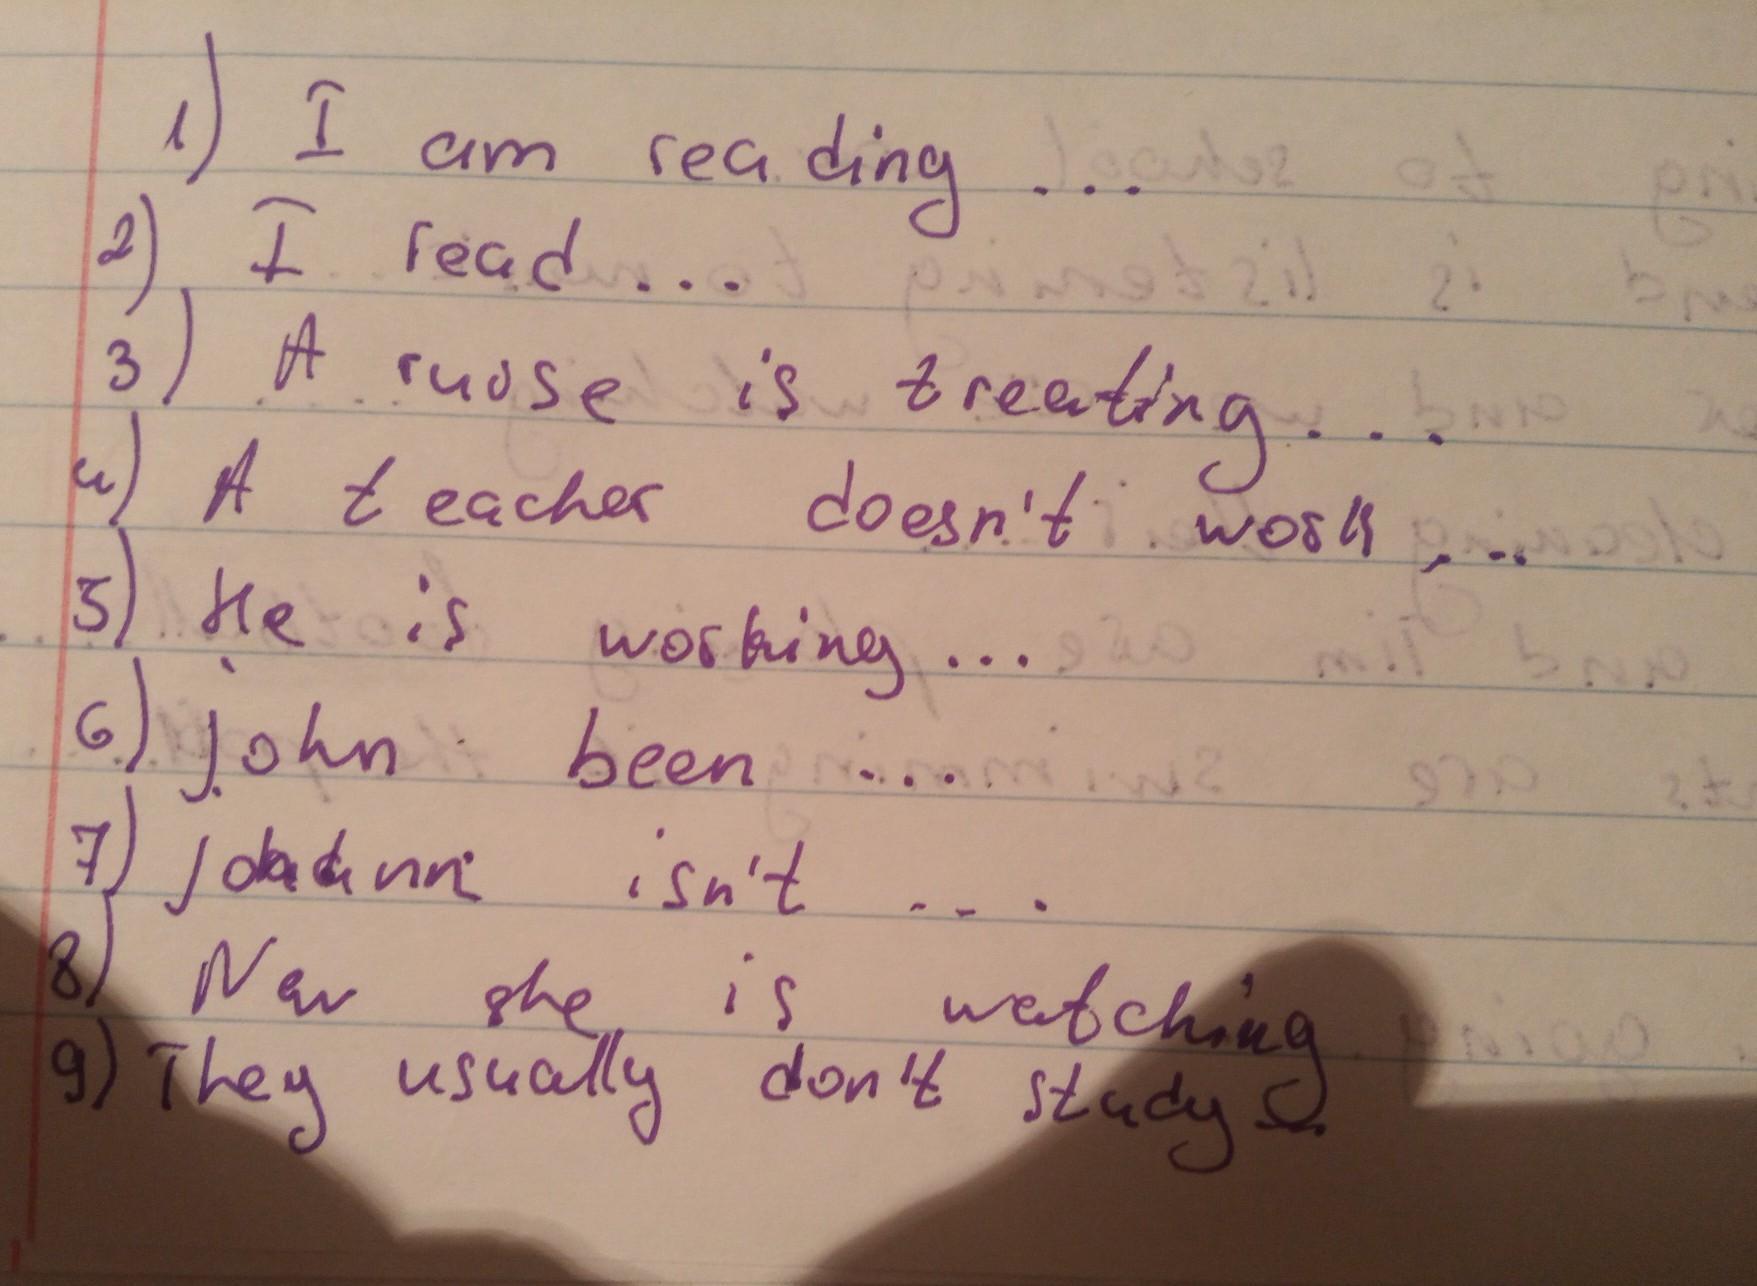 1) I am reading ...
2) I read ...
3) A ruose is treating ...
4) A teacher doesn't work ...
5) He is working ...
6) john been ....
7) isn't ...
8) she is watching
9) They usually don't study